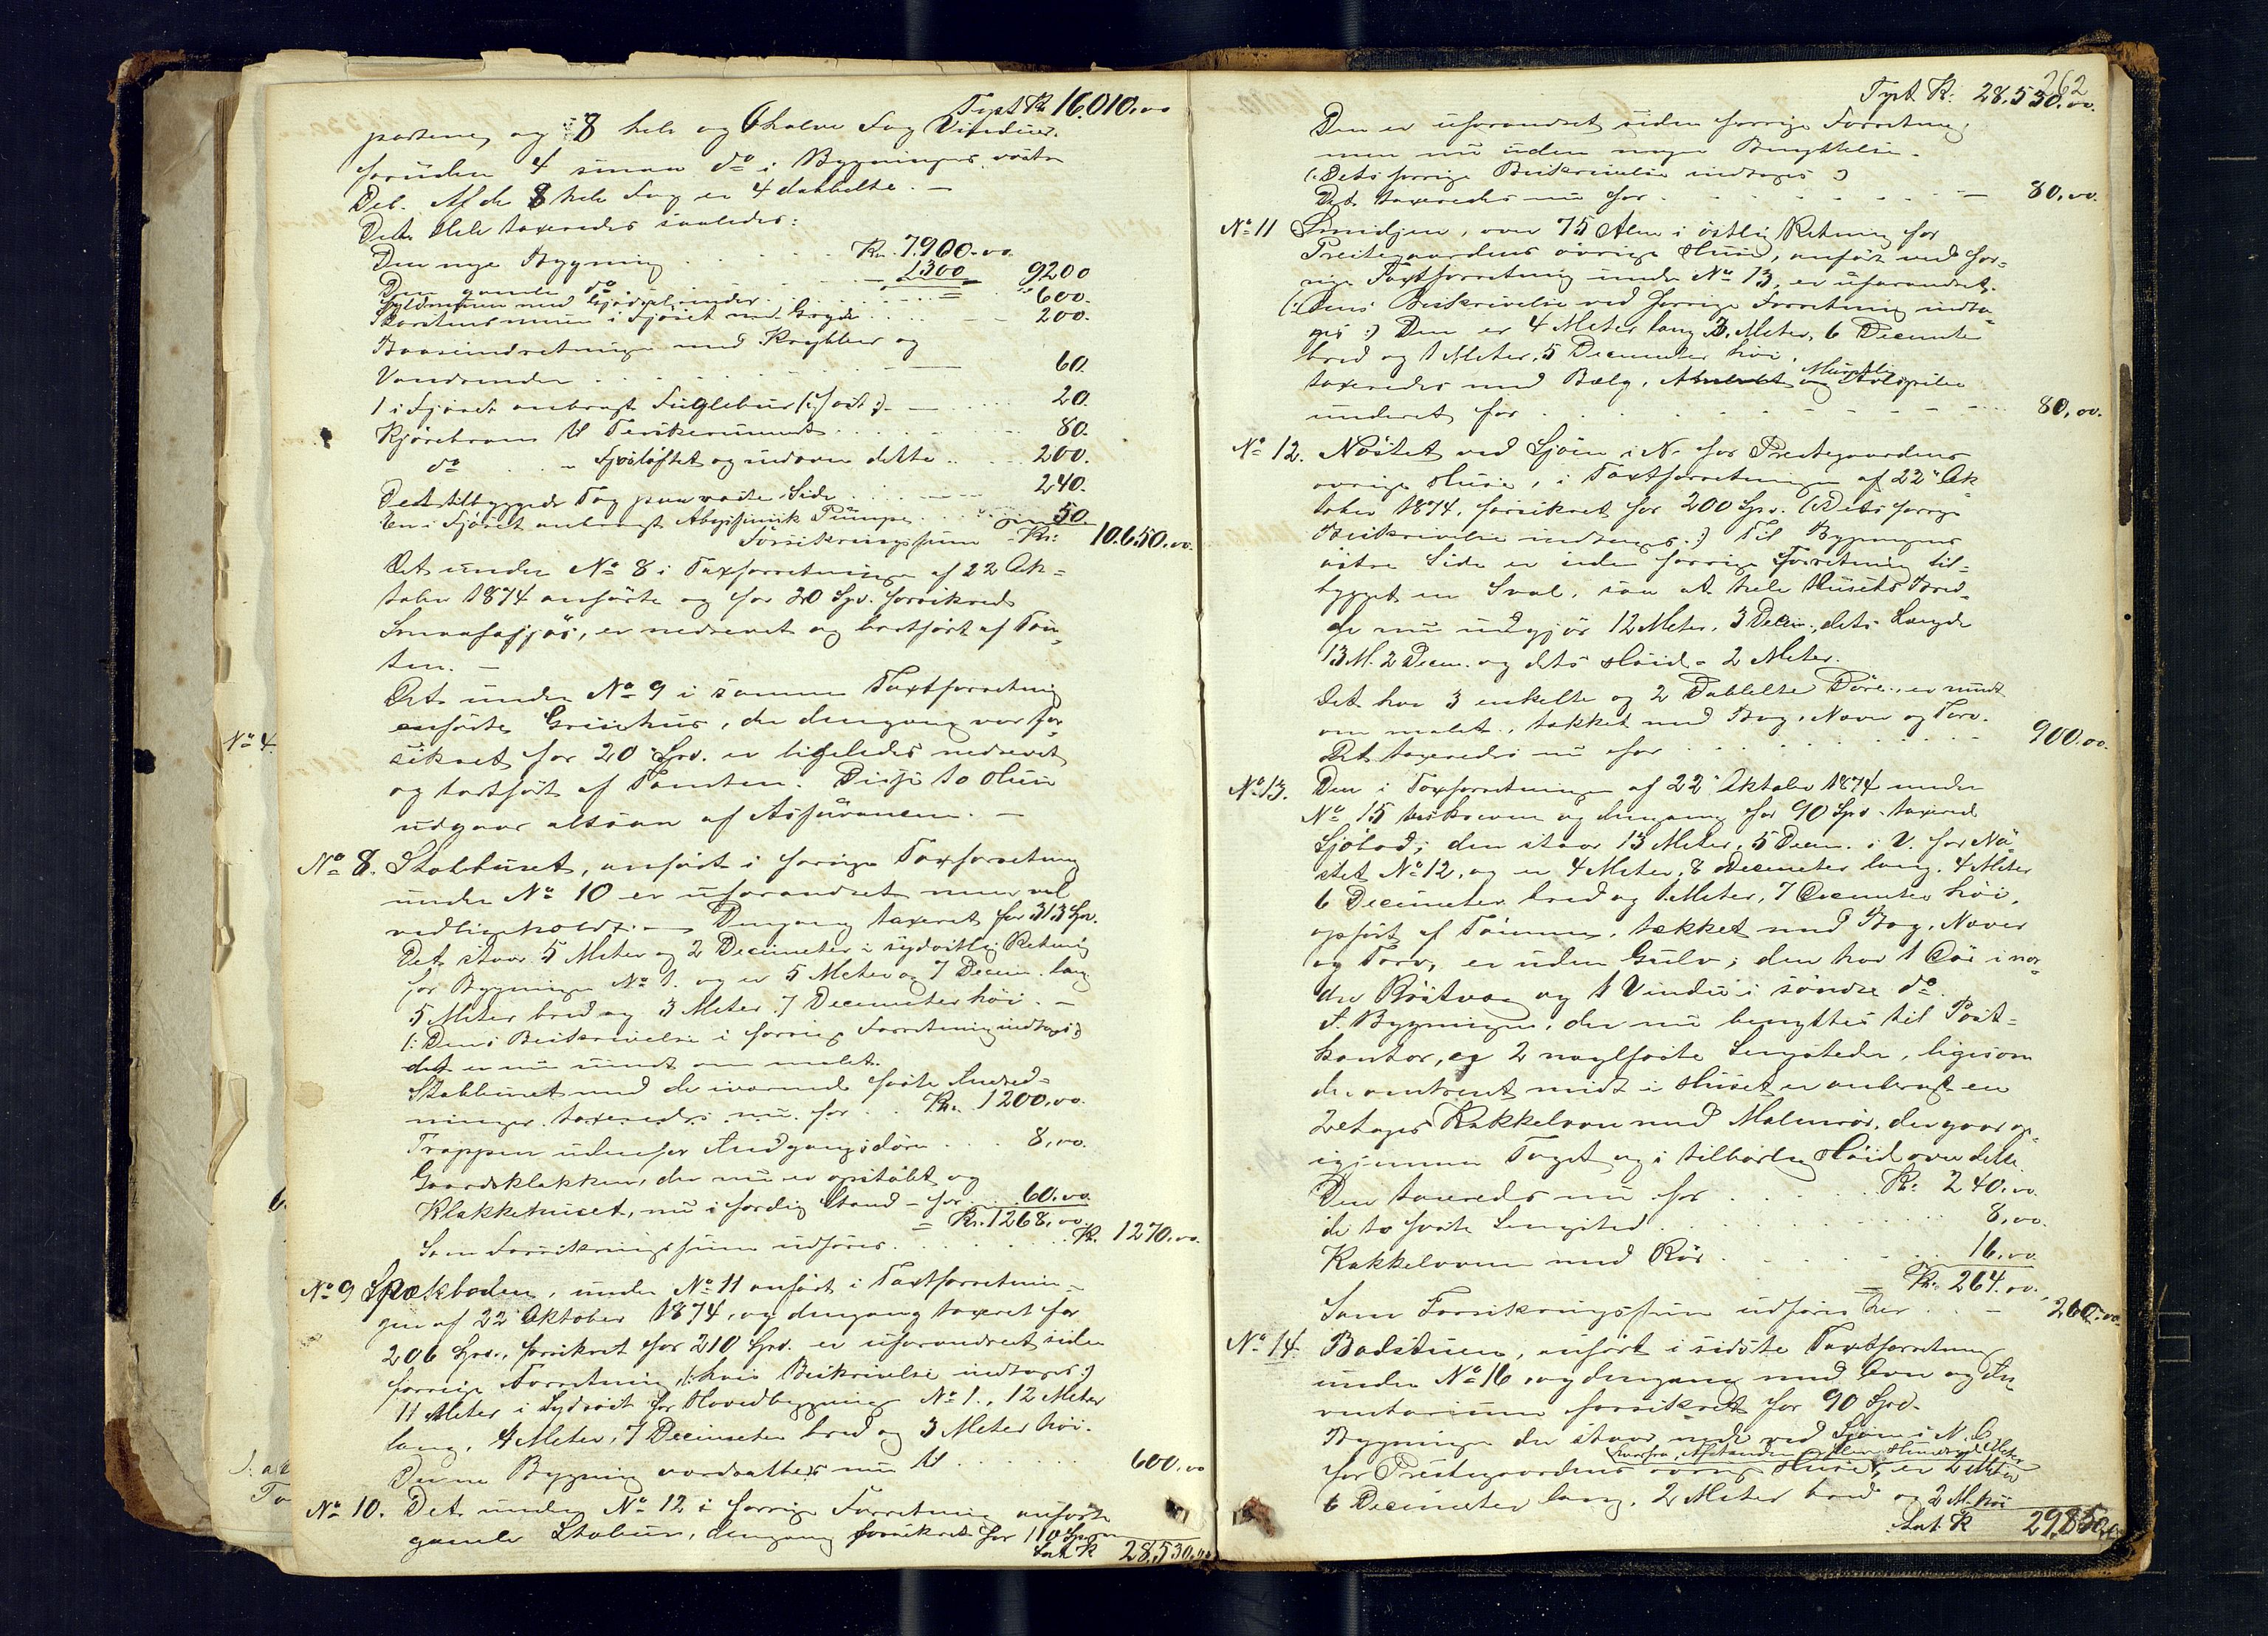 Trpt Kr. 16.010.00
portene og 8 hele og 6 halve Fag Vinduer
foruden 4 smaa do i Bygningens vestre
Del. Af de 8 hele Fag er 4 dobbelte. —
Det Hele taxeredes saaledes:
Den nye Bygning . . . . . Kr. 7.900.00
Den gamle do . . . . . 1300 9200
600.
Skorstensmuur i Fjøset med Gryde . . . . 200.
Baaseindretninger med Krybber og
Vandrender . . . . . 60.
1 i Fjøset anbragt Fuglebur . . . . 20.
Kjørebroen til . . . . 80.
do . . Fjøsloftet og indover dette . . . 200.
Det tilbyggede Tag paa vestre Side . . . 240.
En i Fjøset anbragt Abyssinisk Pumpe . . . 50
Forsikringssum Kr: 10.650.00
Det under No 8 i Taxtforretningen af 22 Ok-
tober 1874 anførte og for 20 Spd. forsikrede
Smaafæfjøs, er nedrevet og bortført af Tom-
ten. —
Det under No 9 i samme Taxtforretning
anførte Grisehus, der dengang var for-
sikret for 20 Spd. er ligeledes nedrevet
og bortført af Tomten. Disse to Huse
udgaar altsaa af Assurancen. —
No 8. Stabburet, anført i forrige Taxtforretning
under No 10 er uforandret men vel
vedligeholdt. — Dengang taxeret for 313 Spd.
Det staar 5 Meter og 2 Decimeter i sydvestlig Retning
for Bygningen No 1. og er 5 Meter og 7 Decim. lang
5 Meter bred og 3 Meter 7 Decimeter høi. —
(: Dens Beskrivelse i forrige Forretning indtages :)
det er nu uindt om malet.
Stabburet med de iværende faste Indred-
ninger taxeredes nu for . . Kr. 1200.00.
Trappen udenfor Indgangsdøren . . . 8,00.
Gaardsklokken, der nu er opstøbt og
Klokkehuset, nu i færdig Stand - for 60.00
= Kr. 1268,00.
Som Forsikringssum udføres . . . . . Kr. 1270.00
No 9 Spækboden, under No 11 anført i Taxtforretnin-
gen af 22 Oktober 1874, og dengang taxeret for
206 Spd., forsikret for 210 Spd. er uforandret siden
forrige Forretning, (: hvis Beskrivelse indtages :)
11 Meter i Sydvest for Hovedbygningen No 1., 12 Meter
lang, 4 Meter, 7 Decimeter bred og 3 Meter høi.
Denne Bygning værdsattes nu til . . . . . 600.00
No 10. Det under No 12 i forrige Forretning anførte
gamle Stabur, dengang forsikret for 110 Spd.
Lat. Kr 28.530.00
262
Trpt. Kr. 28.530.00.
Den er uforandret siden forrige Forretning,
men nu uden nogen Benyttelse.
(: Dets forrige Beskrivelse indtages :)
Det taxeredes nu for . . . . . . . . — 80,00.
No 11 Smidjen, over 75 Alen i østlig Retning for
Prestegaardens øvrige Huse, anført ved for-
rige Taxtforretning under No 13, er uforandret.
(: Dens Beskrivelse ved forrige Forretning indta-
ges :) Den er 4 Meter lang 3. Meter, 6 Decimeter
bred og 1 Meter, 5 Decimeter høi.
taxeredes med Bælg,
for . . . . . . . . . . 80,00.
No 12. Nøstet ved Sjøen i N. for Prestegaardens
øvrige Huse, i Taxtforretningen af 22 Ok-
tober 1874, forsikret for 200 Spd. (: Dets forrige
Beskrivelse indtages. :) Til Bygningens
østre Side er siden forrige Forretning til-
bygget en Sval, saa at hele Husets Bred-
de nu udgjør 12 Meter, 3 Decim., dets Længde
13 M. 2 Decim. og dets Høide 2 Meter.
Det har 3 enkelte og 2 Dobbelte Døre, er uindt
om malet, tækket med Bog, Næver og Torv.
Det taxeredes nu for . . . . . . . . 900.00.
No 13. Den i Taxtforretningen af 22 Oktober 1874 under
No 15 beskrevne og dengang for 90 Spd. taxerede
Sjøbod; den staar 13 Meter, 5 Decim. i V. for Nø-
stet No 12, og er 4 Meter, 8 Decimeter lang, 4 Meter
6 Decimeter bred og 1 Meter, 7 Decimeter høi,
opført af Tømmer, tækket med Bog, Næver
og Torv, er uden Gulv; den har 1 Dør i nor-
dre Røstvæg og 1 Vindu i søndre do.
I Bygningen, der nu benyttes til Post-
kontor, er 2 naglfaste Sengsteder, ligesom
der omtrent midt i Huset er anbragt en
2 etages Kakkelovn med Malmrør, der gaar op
igjennem Taget og i tilbørlig Høide over dette.
Den taxeredes nu for . . . . . . Kr. 240,00.
de to faste Sengested . . . . . . . . 8,00.
Kakkelovnen med Rør . . . . . . 16.00
= Kr. 264.00.
Som Forsikringssum udføres her . . . — 260.00
No 14. Badstuen, anført i sidste Taxtforretning
under No 16, og dengang med Ovn og In-
ventarium forsikret for 90 Spd.
Bygningen der staar nede ved Sjøen i N. O.
hvorfra Afstanden
for Prestegaardens øvrige Huse, er 2 Meter
6 Decimeter lang, 2 Meter bred og 2 M. høi
Lat. Kr 29,850,00